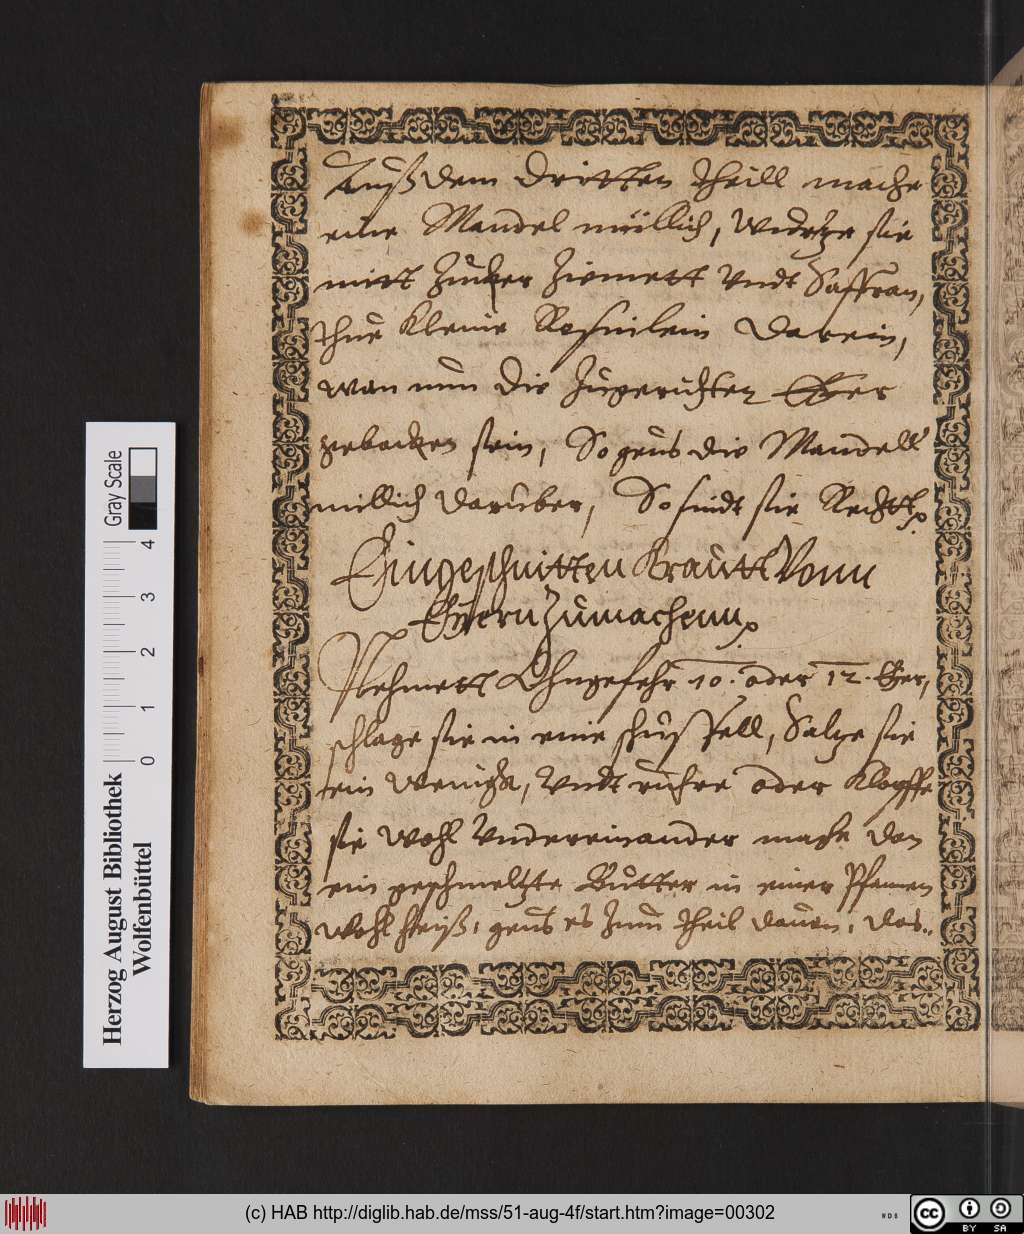 Auß dem dritten theill mache
eine Mandel müllich, Vndtze sie
mitt Zucker Ziemett Vndt Saffran,
thue kleine Rosinlein darein,
wan nun die zugerichten Eÿer
gebacken sein, So geus die Mandell
millich daruber, So sindt sie Recht
Eingeschnitten krautt Vonn
Eÿern Zumachenn
Nehmett Ohngefehr 10. oder 12. Eÿer,
schlage sie in eine schüssell, Saltze sie
ein wenigk, Vndt rühre oder Klopffe
sie wohl Vndereinander mache dan
ein geschmeltzte Butter in einer Pfannen
wohl heiß, geus es zum theil dauon, das..
Herzog August Bibliothek
Wolfenbüttel
0 1 2 3 4
Gray Scale
(c) HAB http://diglib.hab.de/mss/51-aug-4f/start.htm?image=00302
WDB
cc BY SA